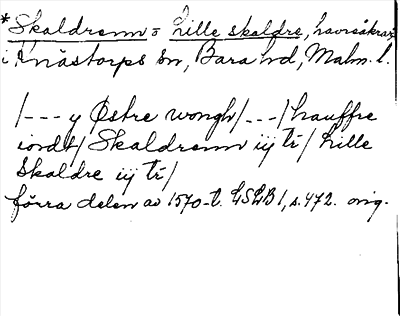 *Skaldrenn o lille skaldre, havreåkrar
i Knästorps sn, Bara hd, Malm. l.
/--- y Østre wongh/---/hauffre
iordt/Skaldrenn iij tr/lille
Skaldre iij tr/
förra delen av 1570-t. LSLB 1, s. 472. orig.